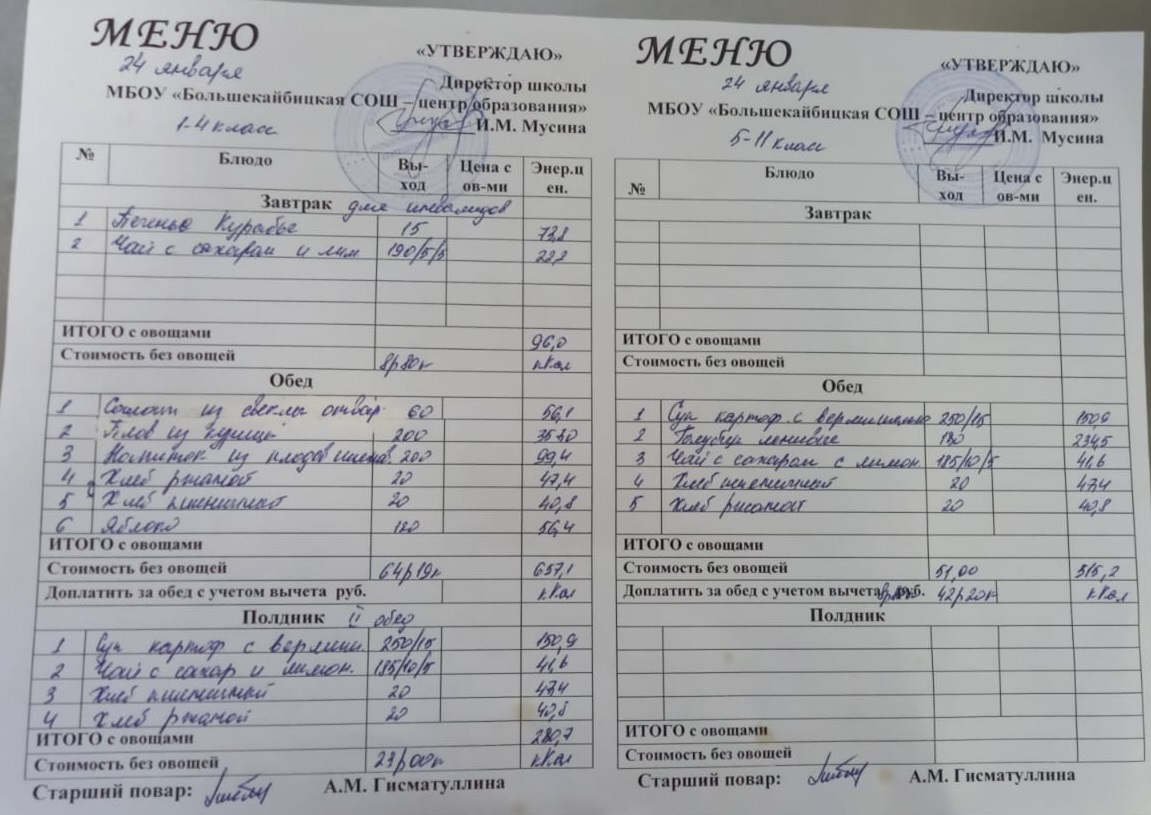 МЕНЮ
24 января
«УТВЕРЖДАЮ»
Директор школы
МБОУ «Большекайбицкая СОШ – центр образования»
1-4 класс
И.М. Мусина
№ Блюдо Вы-ход Цена с ов-ми Энер.ц ен.
Завтрак для инвалидов
1 Печенье Курабье 15 73,8
2 Чай с сахаром и лим 190/5/5 22,2
ИТОГО с овощами 96,0
Стоимость без овощей 8р80к кКал
Обед
1 Салат из свеклы отвар. 60 56,1
2 Плов из курицы 200
3 Напиток из плодов шипов. 200 99,4
4 Хлеб ржаной 20 47,4
5 Хлеб пшеничный 20 40,8
6 Яблоко 120 56,4
ИТОГО с овощами
Стоимость без овощей 64р19к 657,1
Доплатить за обед с учетом вычета руб. кКал
Полдник II обед
1 Суп картоф с вермиш. 250/15 150,9
2 Чай с сахар и лимон. 185/10/5 41,6
3 Хлеб пшеничный 20 47,4
4 Хлеб ржаной 20 40,8
ИТОГО с овощами 280,7
Стоимость без овощей 23р00к кКал
Старший повар: А.М. Гисматуллина
МЕНЮ
24 января
«УТВЕРЖДАЮ»
Директор школы
МБОУ «Большекайбицкая СОШ – центр образования»
5-11 класс
И.М. Мусина
№ Блюдо Вы-ход Цена с ов-ми Энер.ц ен.
Завтрак
ИТОГО с овощами
Стоимость без овощей
Обед
1 Суп картоф. с вермишелью 250/15 150,9
2 Голубцы ленивые 234,5
3 Чай с сахаром с лимон. 185/10/5 41,6
4 Хлеб пшеничный 20 47,4
5 Хлеб ржаной 20 40,8
ИТОГО с овощами
Стоимость без овощей 51,00 515,2
Доплатить за обед с учетом вычета руб. 42р20к кКал
Полдник
ИТОГО с овощами
Стоимость без овощей
Старший повар: А.М. Гисматуллина